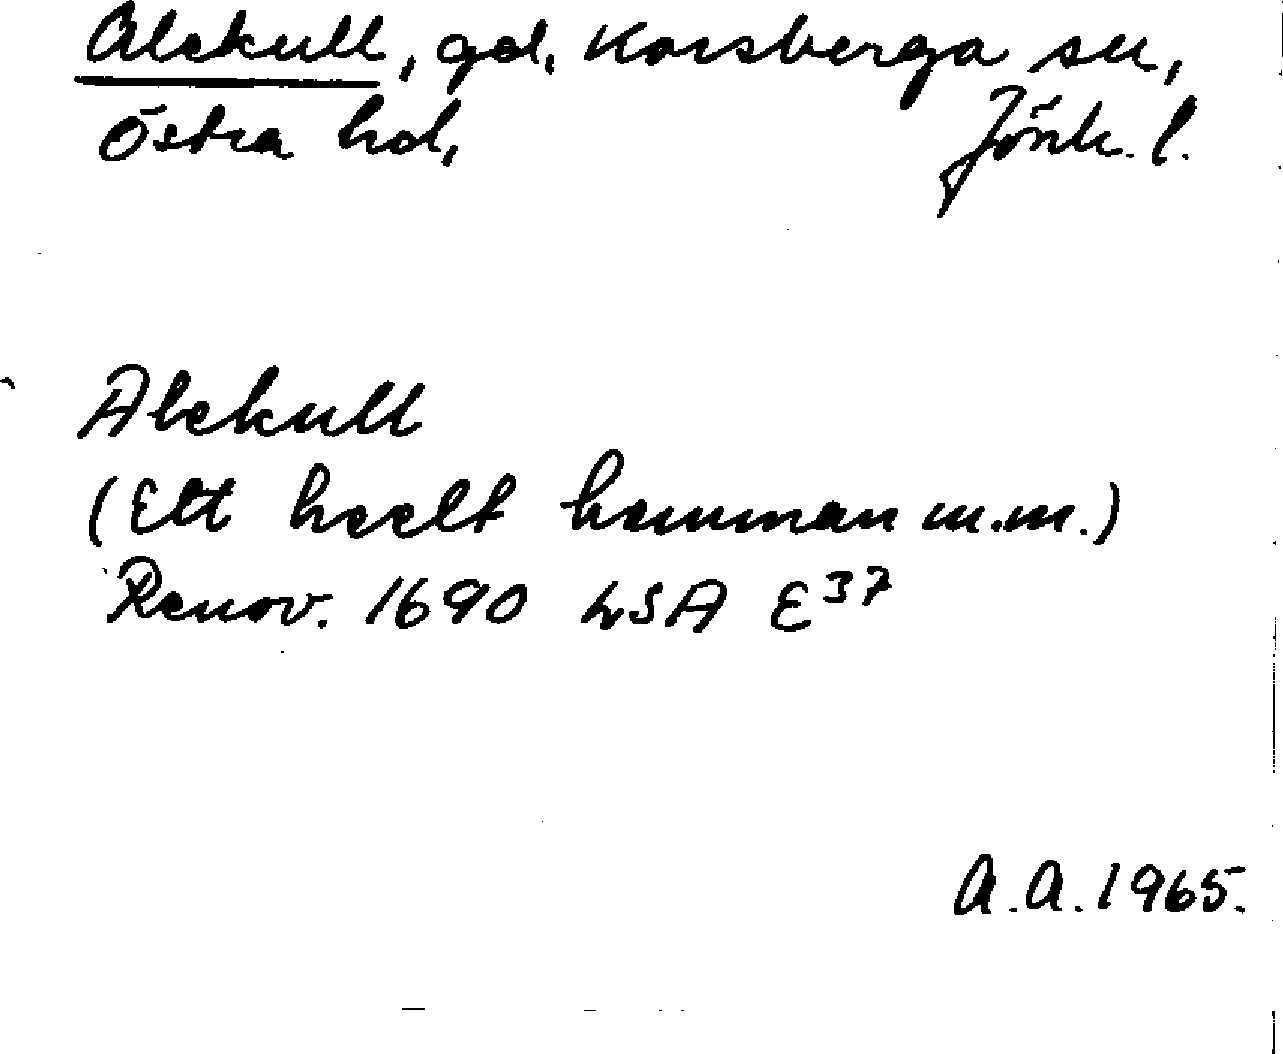 Alekull, gd, Korsberga sn,
Östra hd, Jönk. l.
Alekull
(Ett heelt hemman m.m.)
Renov. 1690 LSA E 37
A.A. 1965.